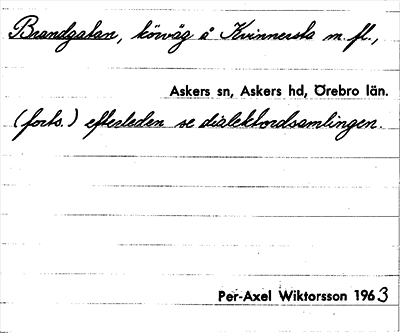 Brandgatan, körväg å Kvinnersta m. fl.,
Askers sn, Askers hd, Örebro län.
(forts.) efterleden se dialektordsamlingen.
Per-Axel Wiktorsson 1963